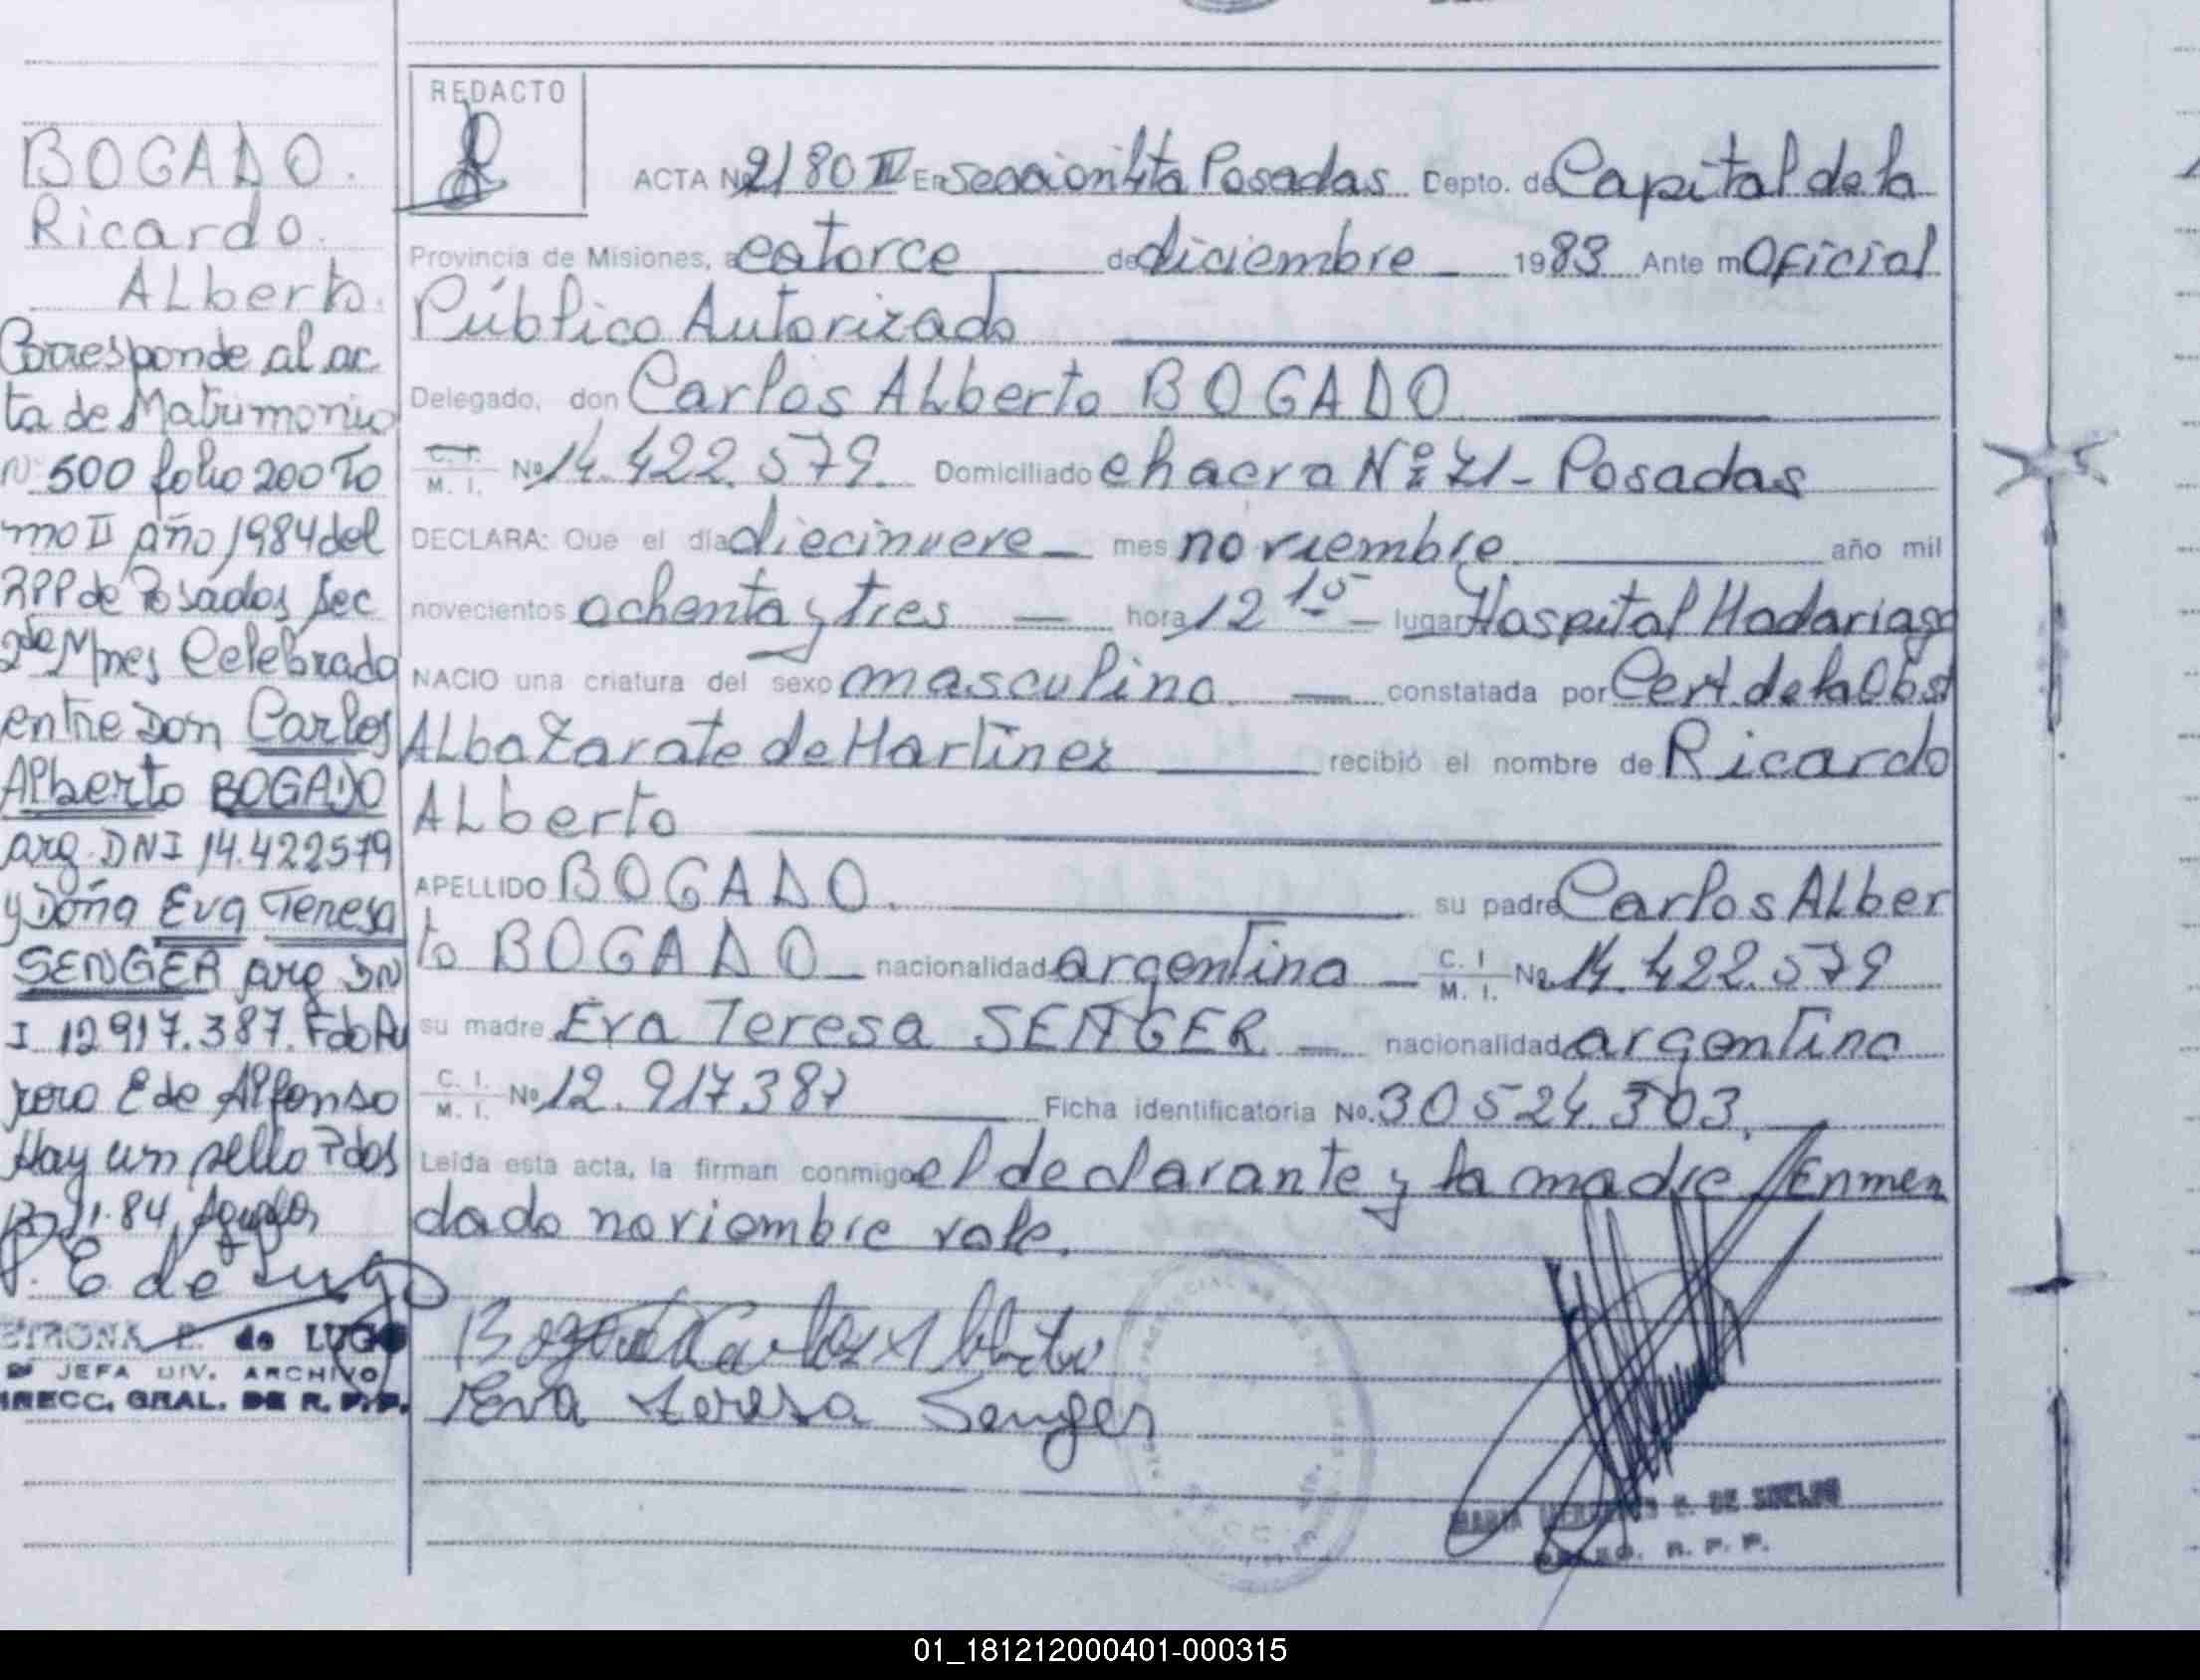 BOGADO.
Ricardo.
ALberto.
Corresponde al ac
ta de Matrimonio
Nº 500 folio 200 To
mo II año 1984 del
RPP de Posadas Sec
2da Mnes Celebrado
entre Don Carlos
Alberto BOGADO
arg. DNI 14.422579
y Doña Eva Teresa
SENGER arg DN
I 12917.387. Fdo
E de Alfonso
Hay un sello Pdos
11.84
P. E de Lugo
E. de LUGO
JEFA DIV. ARCHIVO
DIRECC. GRAL. DE R. P. P.
REDACTO
ACTA Nº 2180 IV En seccion 4ta Posadas Depto. de Capital de la
Provincia de Misiones, a catorce de diciembre 1983 Ante mi Oficial
Público Autorizado
Delegado, don Carlos ALberto BOGADO
C. I. M. I. Nº 14.422.579. Domiciliado chacra Nº 71- Posadas
DECLARA: Que el día diecinueve mes noviembre año mil
novecientos ochenta y tres hora 12 15 lugar Hospital Madariaga
NACIO una criatura del sexo masculino. constatada por Cert. de la Obst
ALba Zarate de Martinez recibió el nombre de Ricardo
ALberto
APELLIDO BOGADO. su padre Carlos ALber
to BOGADO nacionalidad argentina C. I M. I. Nº 14.422.579
su madre Eva Teresa SENGER nacionalidad argentina
C. I. M. I. Nº 12.917387 Ficha identificatoria No. 30524.303.
Leída esta acta, la firman conmigo el declarante y la madre/Enmen
dado noviembre vale.
Bogado Carlos Alberto
Eva teresa Senger
MARIA DE
R. P. P.
01_181212000401-000315